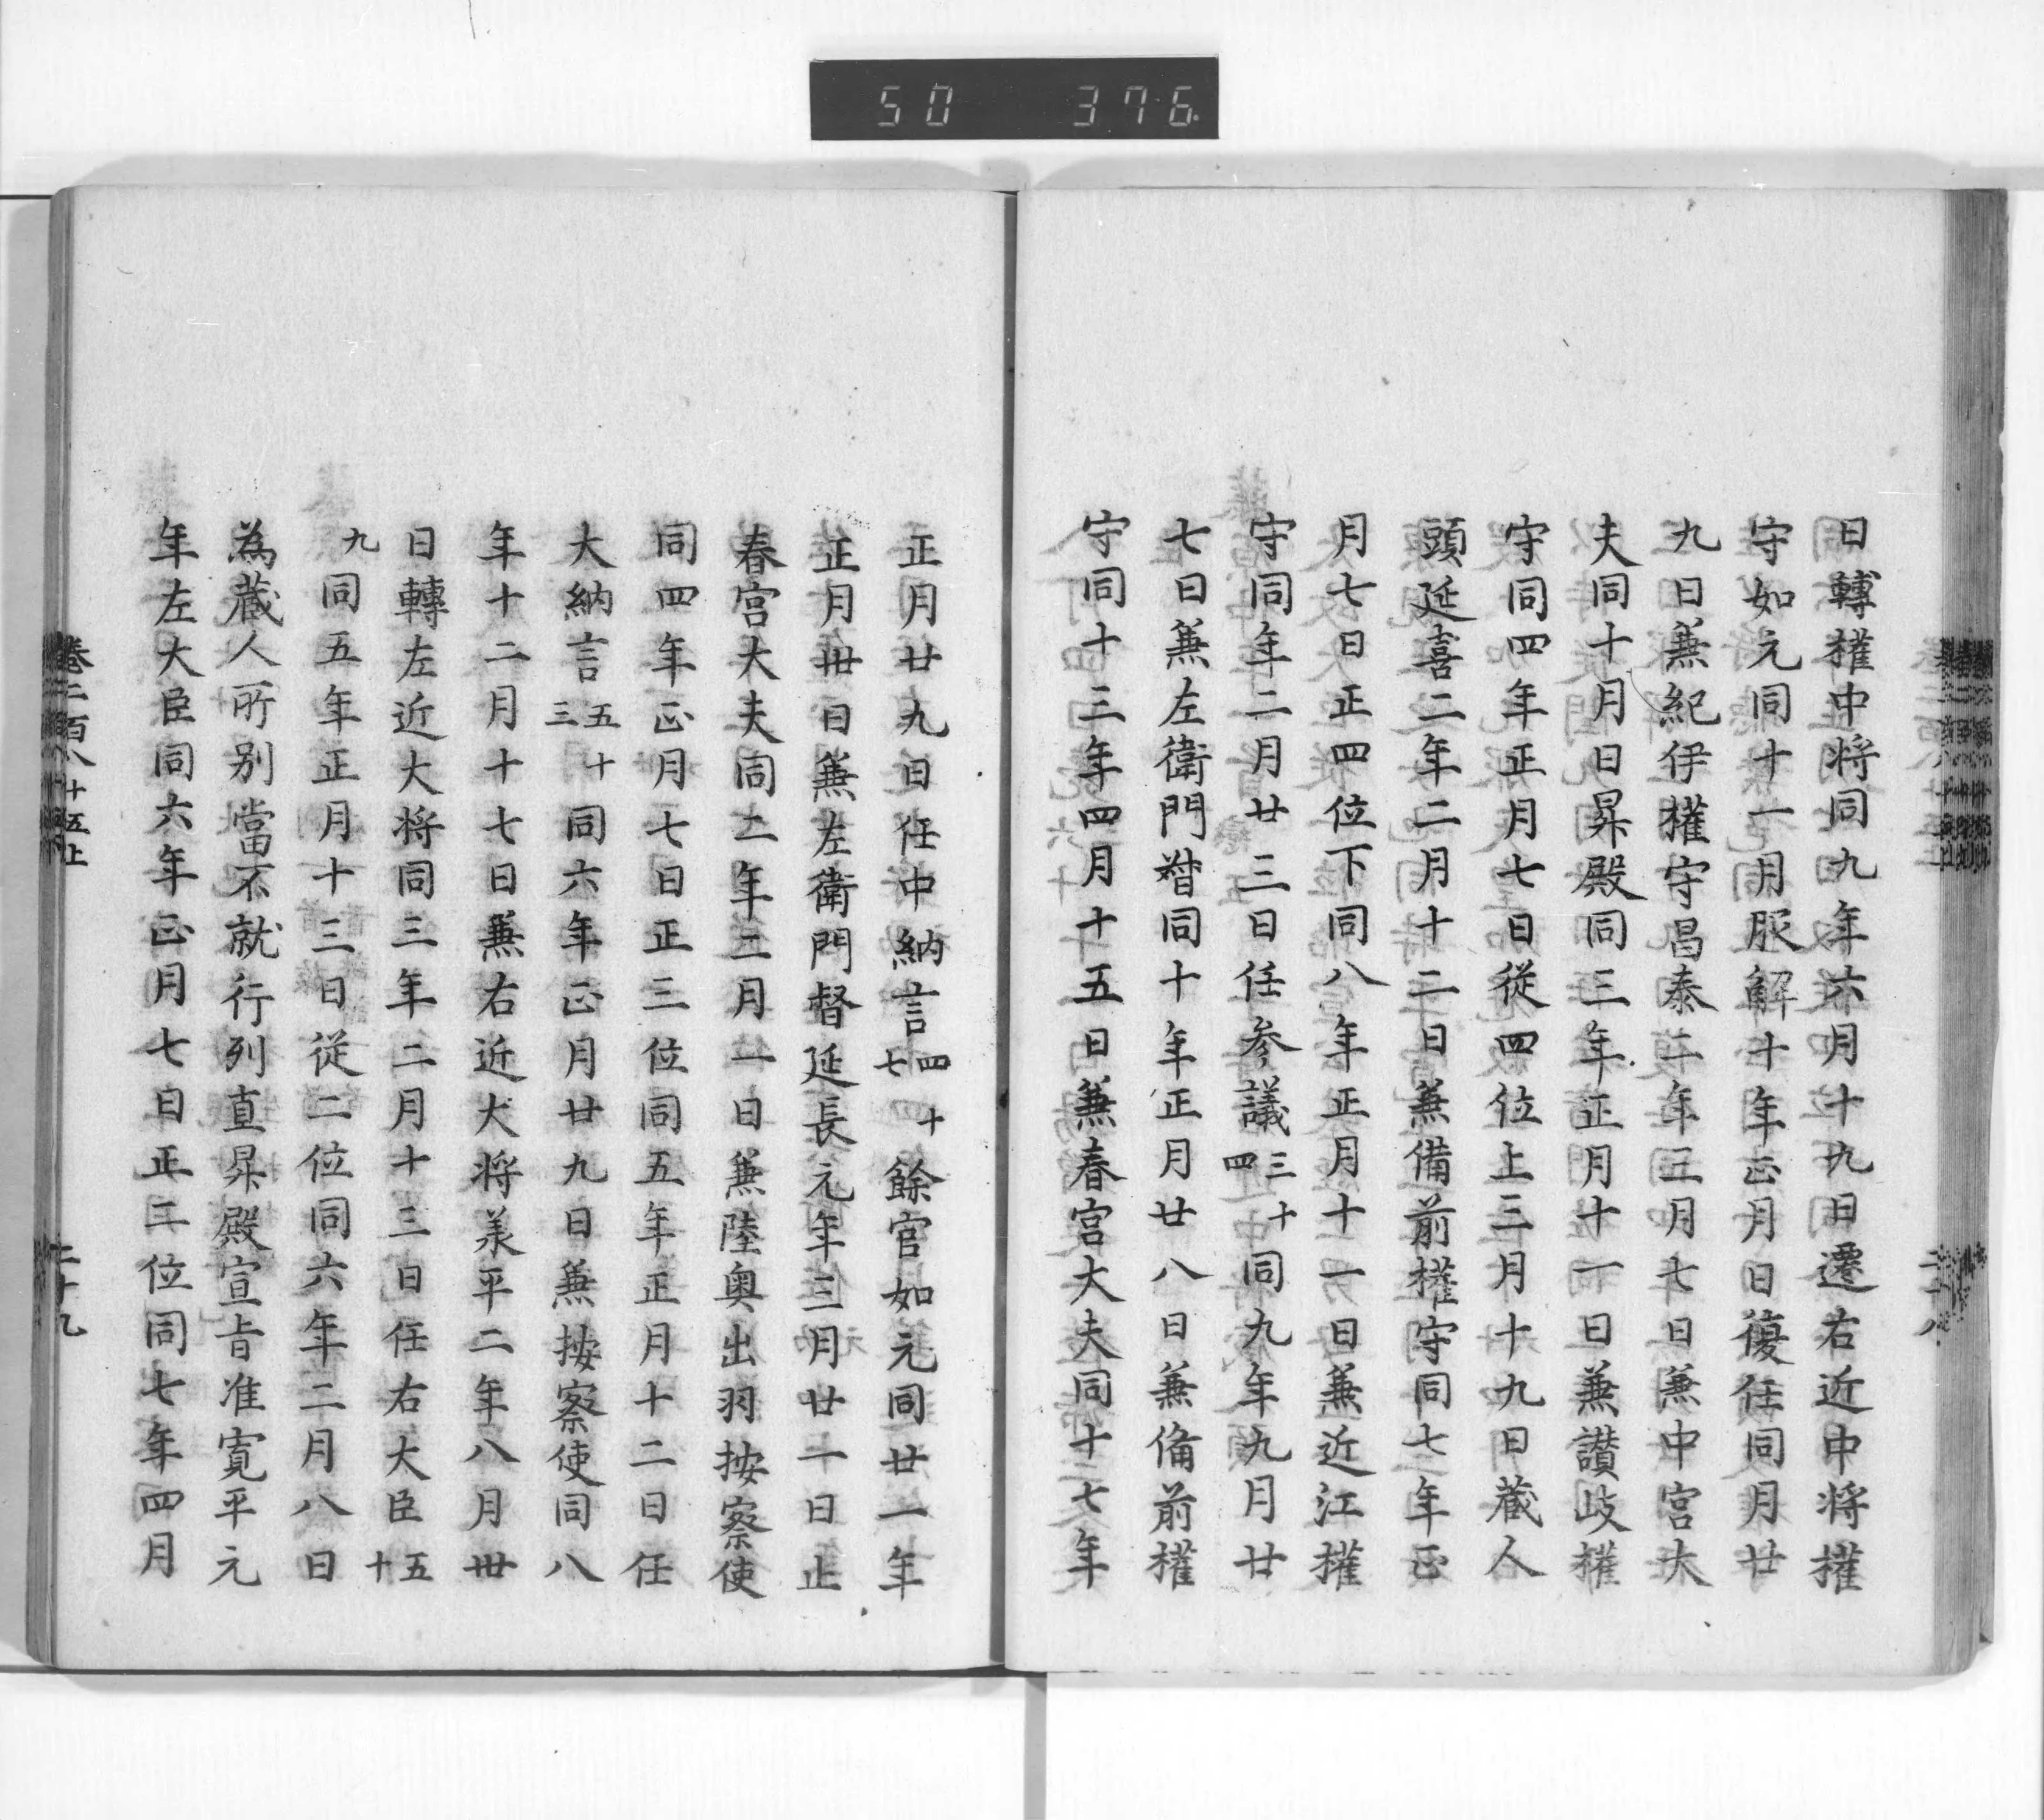 50 376
日轉権中将同九年六月十九日遷右近中将権
守如元同十一月服解十年正月日復任同月廿
九日兼紀伊権守昌泰二年三月七日兼中宮大
夫同十月日昇殿同三年正月十一日兼讃岐権
守同四年正月七日従四位上三月十九日蔵人
頭延喜二年二月十二日兼備前権守同七年正
月七日正四位下同八年正月十一日兼近江権
守同年二月廿三日任参議三十四同九年九月廿
七日兼左衛門督同十年正月廿八日兼備前権
守同十三年四月十五日兼春宮大夫同十七年
二十八
正月廿九日任中納言四十七餘官如元同廿一年
正月卅日兼左衛門督延長元年三月廿一日止
春宮大夫同二年二月一日兼陸奥出羽按察使
同四年正月七日正三位同五年正月十二日任
大納言五十三同六年正月廿九日兼按察使同八
年十二月十七日兼右近大将兼平二年八月卅
日轉左近大将同三年二月十三日任右大臣五十
九同五年正月十三日従二位同六年二月八日
為蔵人所別當不就行列直昇殿宣旨准寛平元
年左大臣同六年正月七日正二位同七年四月
巻二百八十五上
二十九